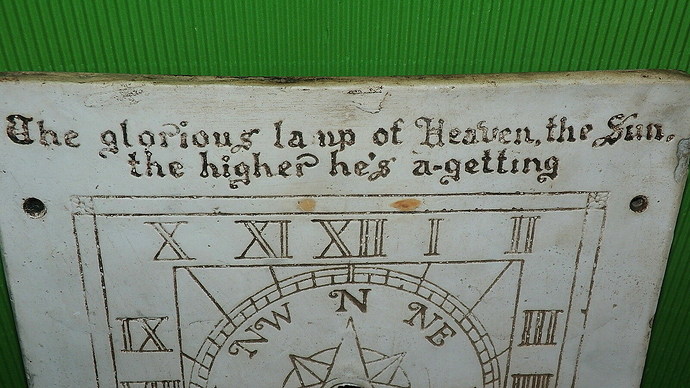 The glorious la up of Heaven, the Sun,
the higher he's a-getting
X XI XII I II
NW N NE
IX III
VIII IIII